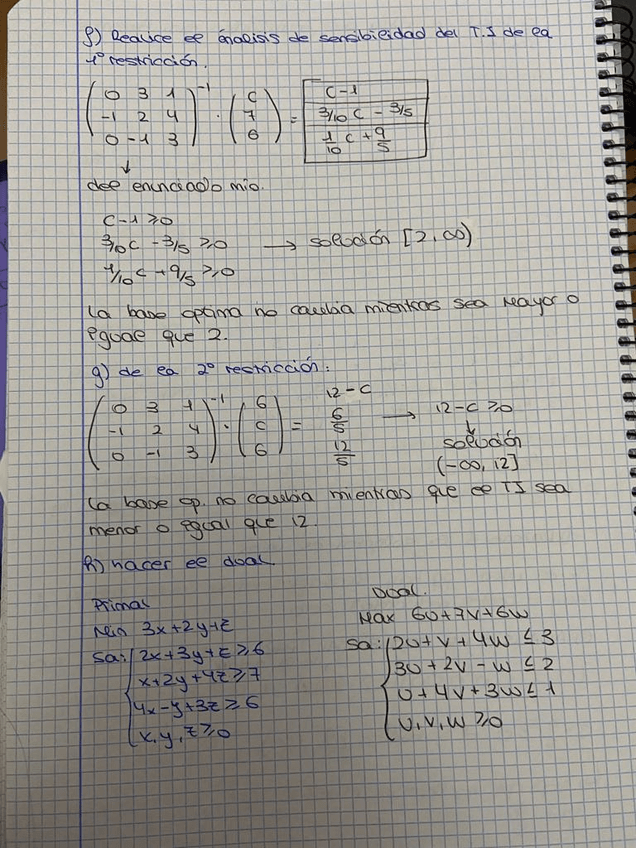 f) Realice el análisis de sensibilidad del T.I de la
1º restricción.
( 0 3 1 )⁻¹ · ( c ) = c-1
( -1 2 4 ) ( 7 ) 3/10 c - 3/5
( 0 -1 3 ) ( 6 ) 1/10 c + 9/5
↓
del enunciado mio.
c-1 ≥0
3/10c - 3/5 ≥0 → solución [2,∞)
1/10c + 9/5 ≥0
La base optima no cambia mientras sea mayor o
igual que 2.
g) de la 2º restricción:
( 0 3 1 )⁻¹ · ( 6 ) = 12-c
( -1 2 4 ) ( c ) 6/5 → 12-c ≥0
( 0 -1 3 ) ( 6 ) 12/5 ↓
solución
(-∞, 12]
La base op. no cambia mientras que el TI sea
menor o igual que 12.
h) hacer el dual.
Primal
Min 3x+2y+z
sa: 2x+3y+z ≥6
x+2y+4z ≥7
4x-y+3z ≥6
x,y,z ≥0
Dual.
Max 6u+7v+6w
sa: 2u+v+4w ≤ 3
3u+2v-w ≤ 2
u+4v+3w ≤ 1
u,v,w ≥0